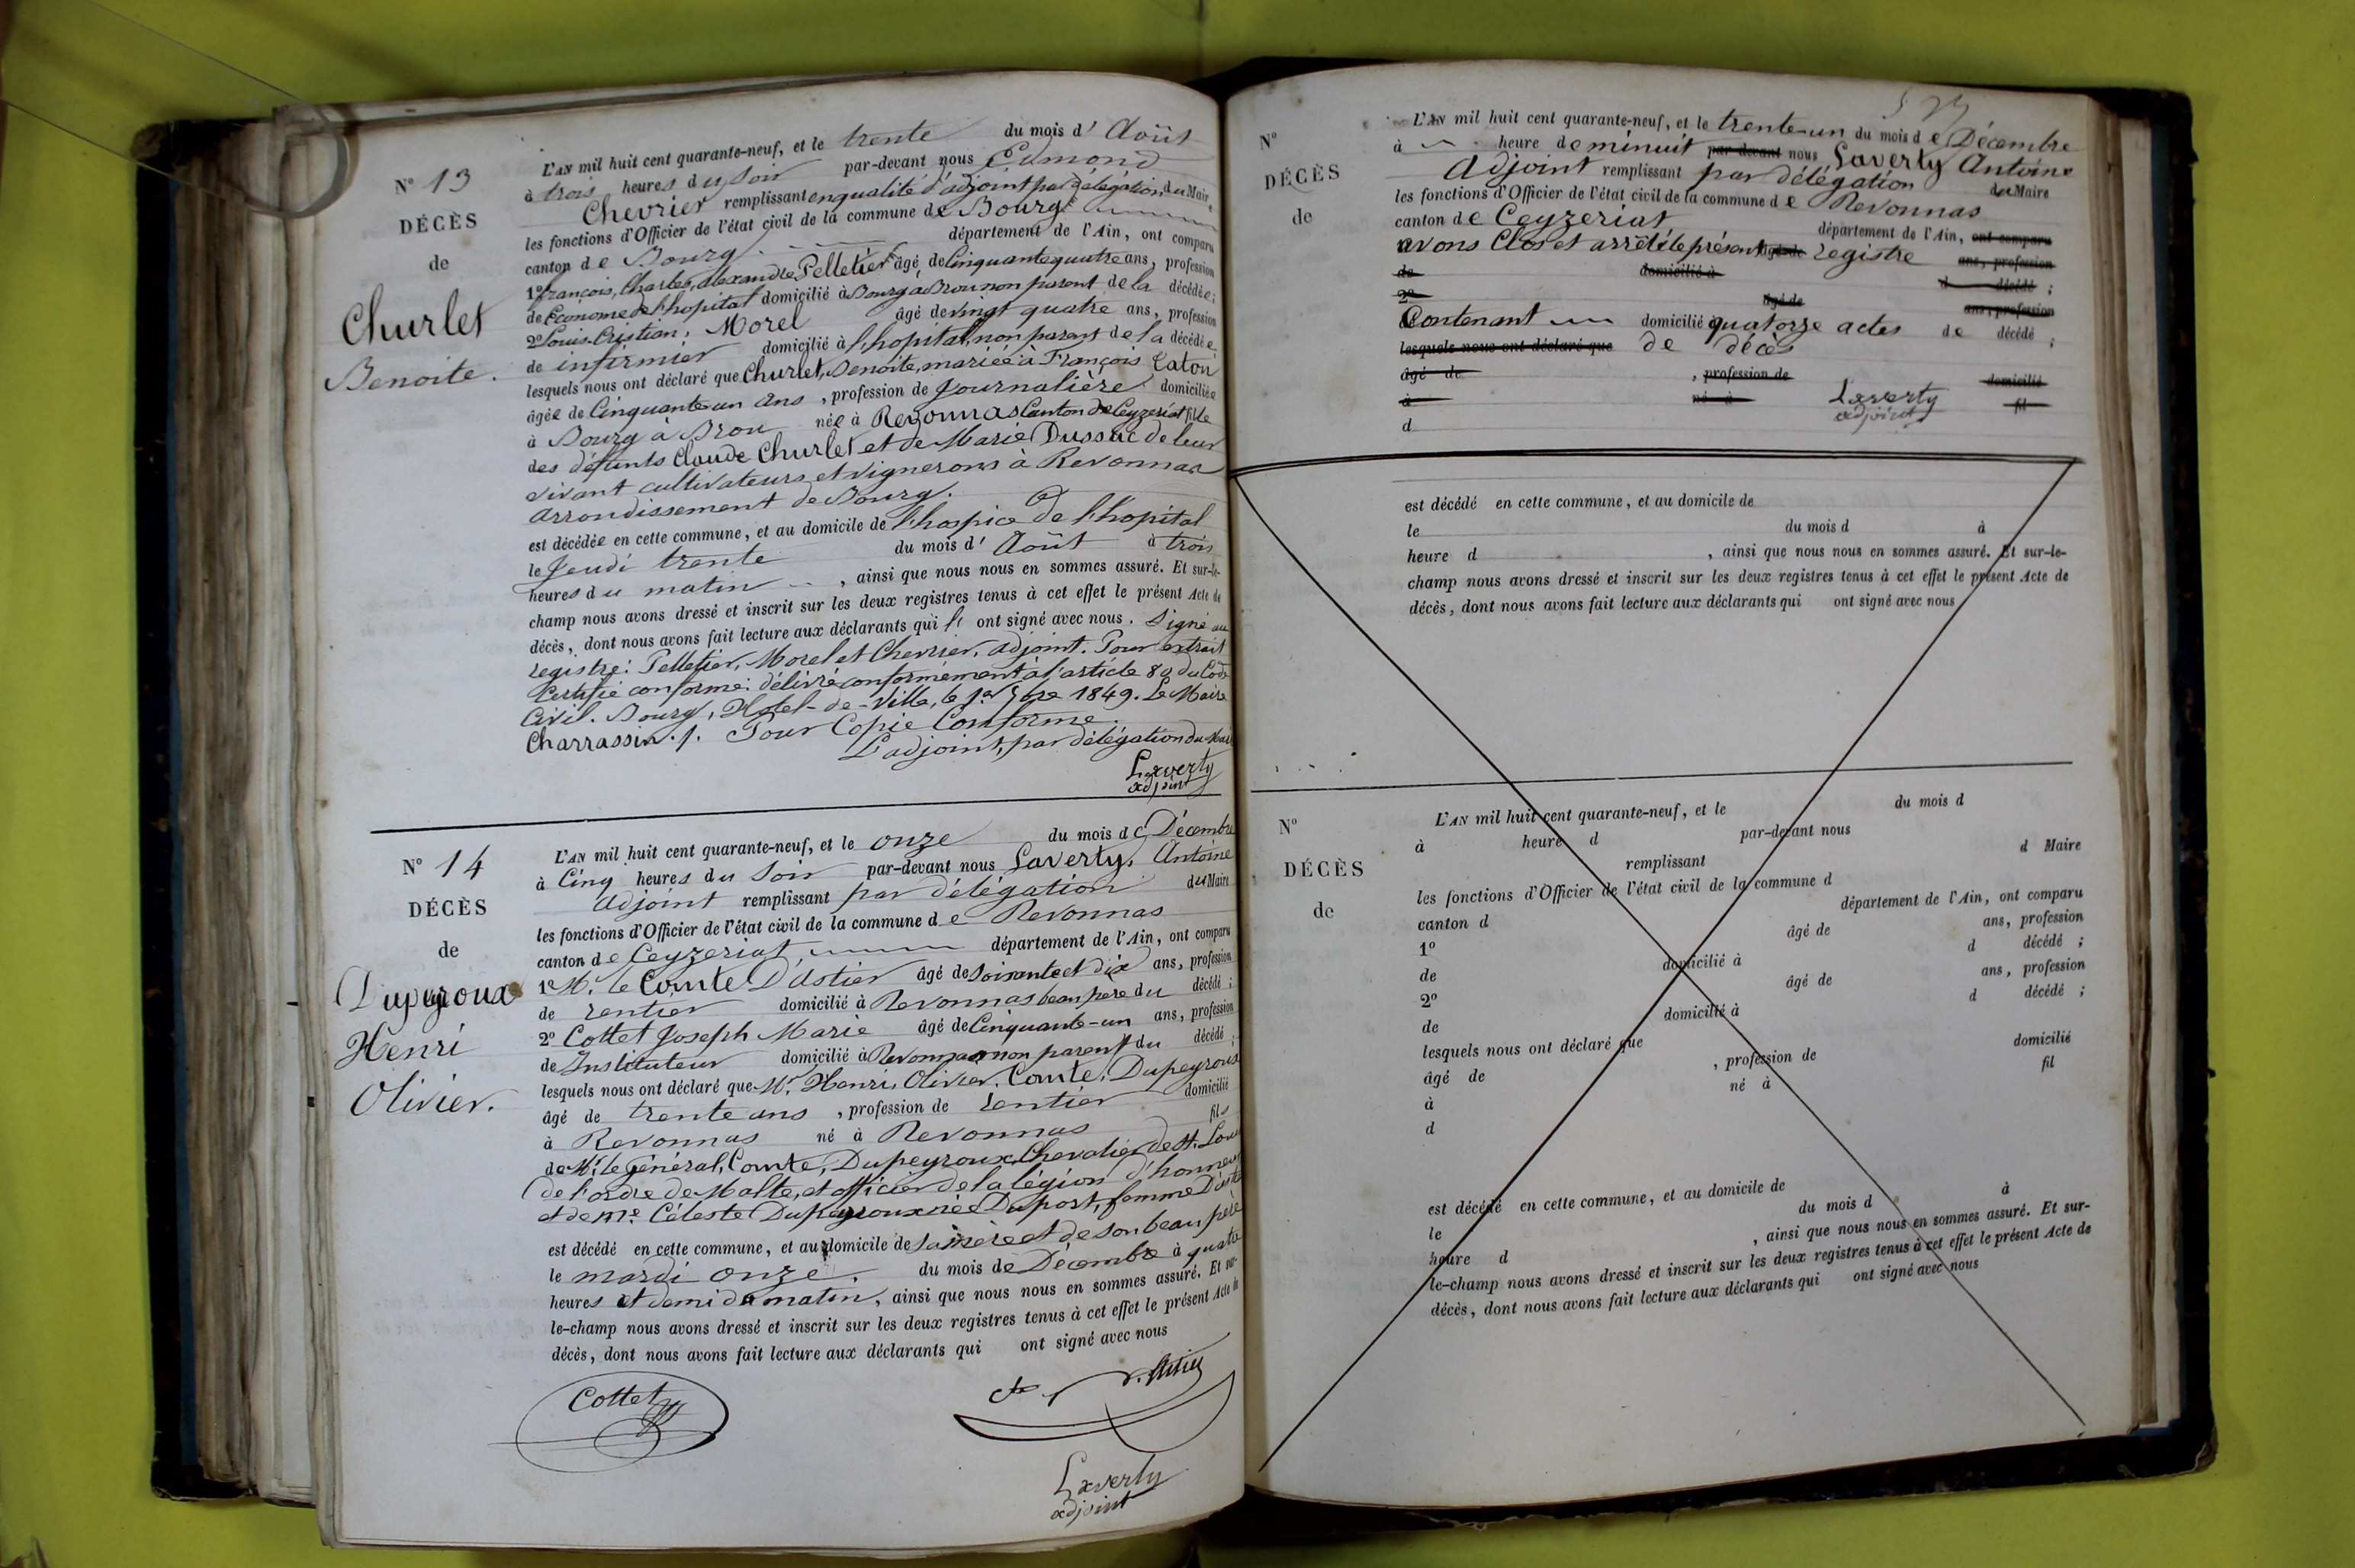 N° 13
DÉCÈS
de
Churlet
Benoite.
L'AN mil huit cent quarante-neuf, et le trente du mois d' Août
à trois heures du soir par-devant nous Edmond
Chevrier remplissant en qualité d'adjoint par délégation du Maire,
les fonctions d'Officier de l'état civil de la commune de Bourg
canton de Bourg département de l'Ain, ont comparu
1° françois, Charles, alexandre Pelletier âgé de Cinquante quatre ans, profession
de Econome de l'hopital domicilié à Bourg à Brou non parent de la décédée;
2° Louis Cristian, Morel âgé de vingt quatre ans, profession
de infirmier domicilié à l'hopital, non parent de la décédée,
lesquels nous ont déclaré que Churlet, Benoite, mariée à François Caton
âgée de Cinquante un ans, profession de Journalière domiciliée
à Bourg à Brou née à Revonnas Canton de Ceyzeriat fille
des défunts Claude Churlet et de Marie Dussuc de leur
vivant cultivateurs et vignerons à Revonnas
arrondissement de Bourg.
est décédée en cette commune, et au domicile de l'hospice de l'hopital
le Jeudi trente du mois d' Août à trois
heures du matin, ainsi que nous nous en sommes assuré. Et sur-le-
champ nous avons dressé et inscrit sur les deux registres tenus à cet effet le présent Acte de
décès, dont nous avons fait lecture aux déclarants qui ont signé avec nous. Signé au
registre: Pelletier, Morel et Chevrier, adjoint. Pour extrait
Certifié conforme: délivré conformément à l'article 80 du Code
Civil. Bourg, Hotel-de-Ville, le 1er 1849. Le Maire
Charrassin. Pour Copie Conforme.
L'adjoint, par délégation du Maire
Laverty
adjoint
N° 14
DÉCÈS
de
Dupeyroux
Henri
Olivier.
L'AN mil huit cent quarante-neuf, et le onze du mois de Décembre
à Cinq heures du Soir par-devant nous Laverty, Antoine
adjoint remplissant par délégation du Maire
les fonctions d'Officier de l'état civil de la commune de Revonnas
canton de Ceyzeriat, département de l'Ain, ont comparu
1° M. le Comte D'astier âgé de soixante et dix ans, profession
de rentier domicilié à Revonnas beau père du décédé;
2° Cottet Joseph Marie âgé de Cinquante-un ans, profession
de Instituteur domicilié à Revonnas non parent du décédé;
lesquels nous ont déclaré que Mr. Henri, Olivier, Comte, Dupeyroux
âgé de trente ans, profession de rentier domicilié
à Revonnas né à Revonnas fils
de Mr. le Général, Comte, Dupeyroux, Chevalier de St. Louis
de l'ordre de Malte, et officier de la légion d'honneur
et de Me. Céleste Dupeyroux née Duport, femme D'astier
est décédé en cette commune, et au domicile de sa mère et de son beau père
le mardi onze du mois de Décembre à quatre
heures et demi du matin, ainsi que nous nous en sommes assuré. Et sur-
le-champ nous avons dressé et inscrit sur les deux registres tenus à cet effet le présent Acte de
décès, dont nous avons fait lecture aux déclarants qui ont signé avec nous
Cottet
Laverty
adjoint
N°
DÉCÈS
de
L'AN mil huit cent quarante-neuf, et le trente-un du mois de Décembre
à heure de minuit par-devant nous Laverty Antoine
Adjoint remplissant par délégation du Maire
les fonctions d'Officier de l'état civil de la commune de Revonnas
canton de Ceyzeriat département de l'Ain, ont comparu
avons Clos et arrêté le présent âgé de registre ans, profession
de domicilié à d décédé;
2° âgé de ans, profession
Contenant domicilié à quatorze actes de décédé;
lesquels nous ont déclaré que de décès
âgé de, profession de domicilié
à né à Laverty fil
d adjoint
est décédé en cette commune, et au domicile de
le du mois d à
heure d, ainsi que nous nous en sommes assuré. Et sur-le-
champ nous avons dressé et inscrit sur les deux registres tenus à cet effet le présent Acte de
décès, dont nous avons fait lecture aux déclarants qui ont signé avec nous
N°
DÉCÈS
de
L'AN mil huit cent quarante-neuf, et le du mois d
à heure d par-devant nous
remplissant d Maire
les fonctions d'Officier de l'état civil de la commune d
canton d département de l'Ain, ont comparu
1° âgé de ans, profession
de domicilié à d décédé;
2° âgé de ans, profession
de domicilié à d décédé;
lesquels nous ont déclaré que
âgé de, profession de domicilié
à né à fil
d
est décédé en cette commune, et au domicile de
le du mois d à
heure d, ainsi que nous nous en sommes assuré. Et sur-
le-champ nous avons dressé et inscrit sur les deux registres tenus à cet effet le présent Acte de
décès, dont nous avons fait lecture aux déclarants qui ont signé avec nous